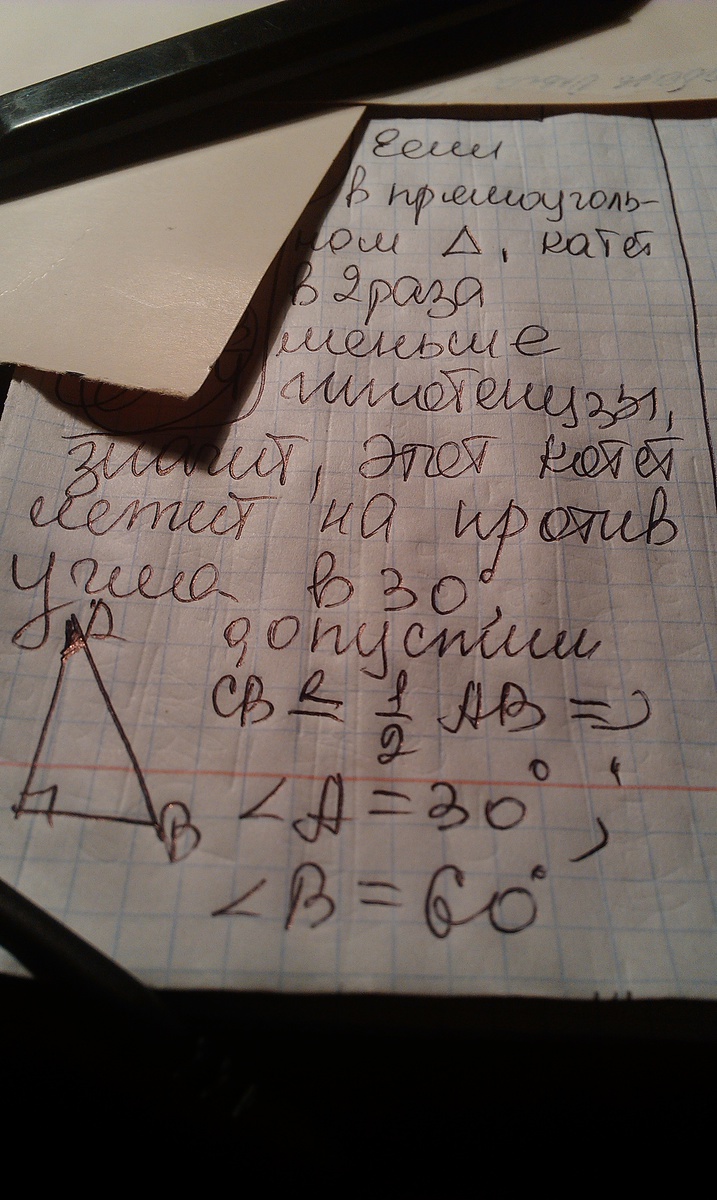 Если
в прямоуголь-
ном Δ, катет
в 2 раза
меньше
гипотенузы,
значит, этот катет
лежит на против
угла в 30°,
допустим
CB = 1/2 AB =>
∠A = 30°,
∠B = 60°
A
B